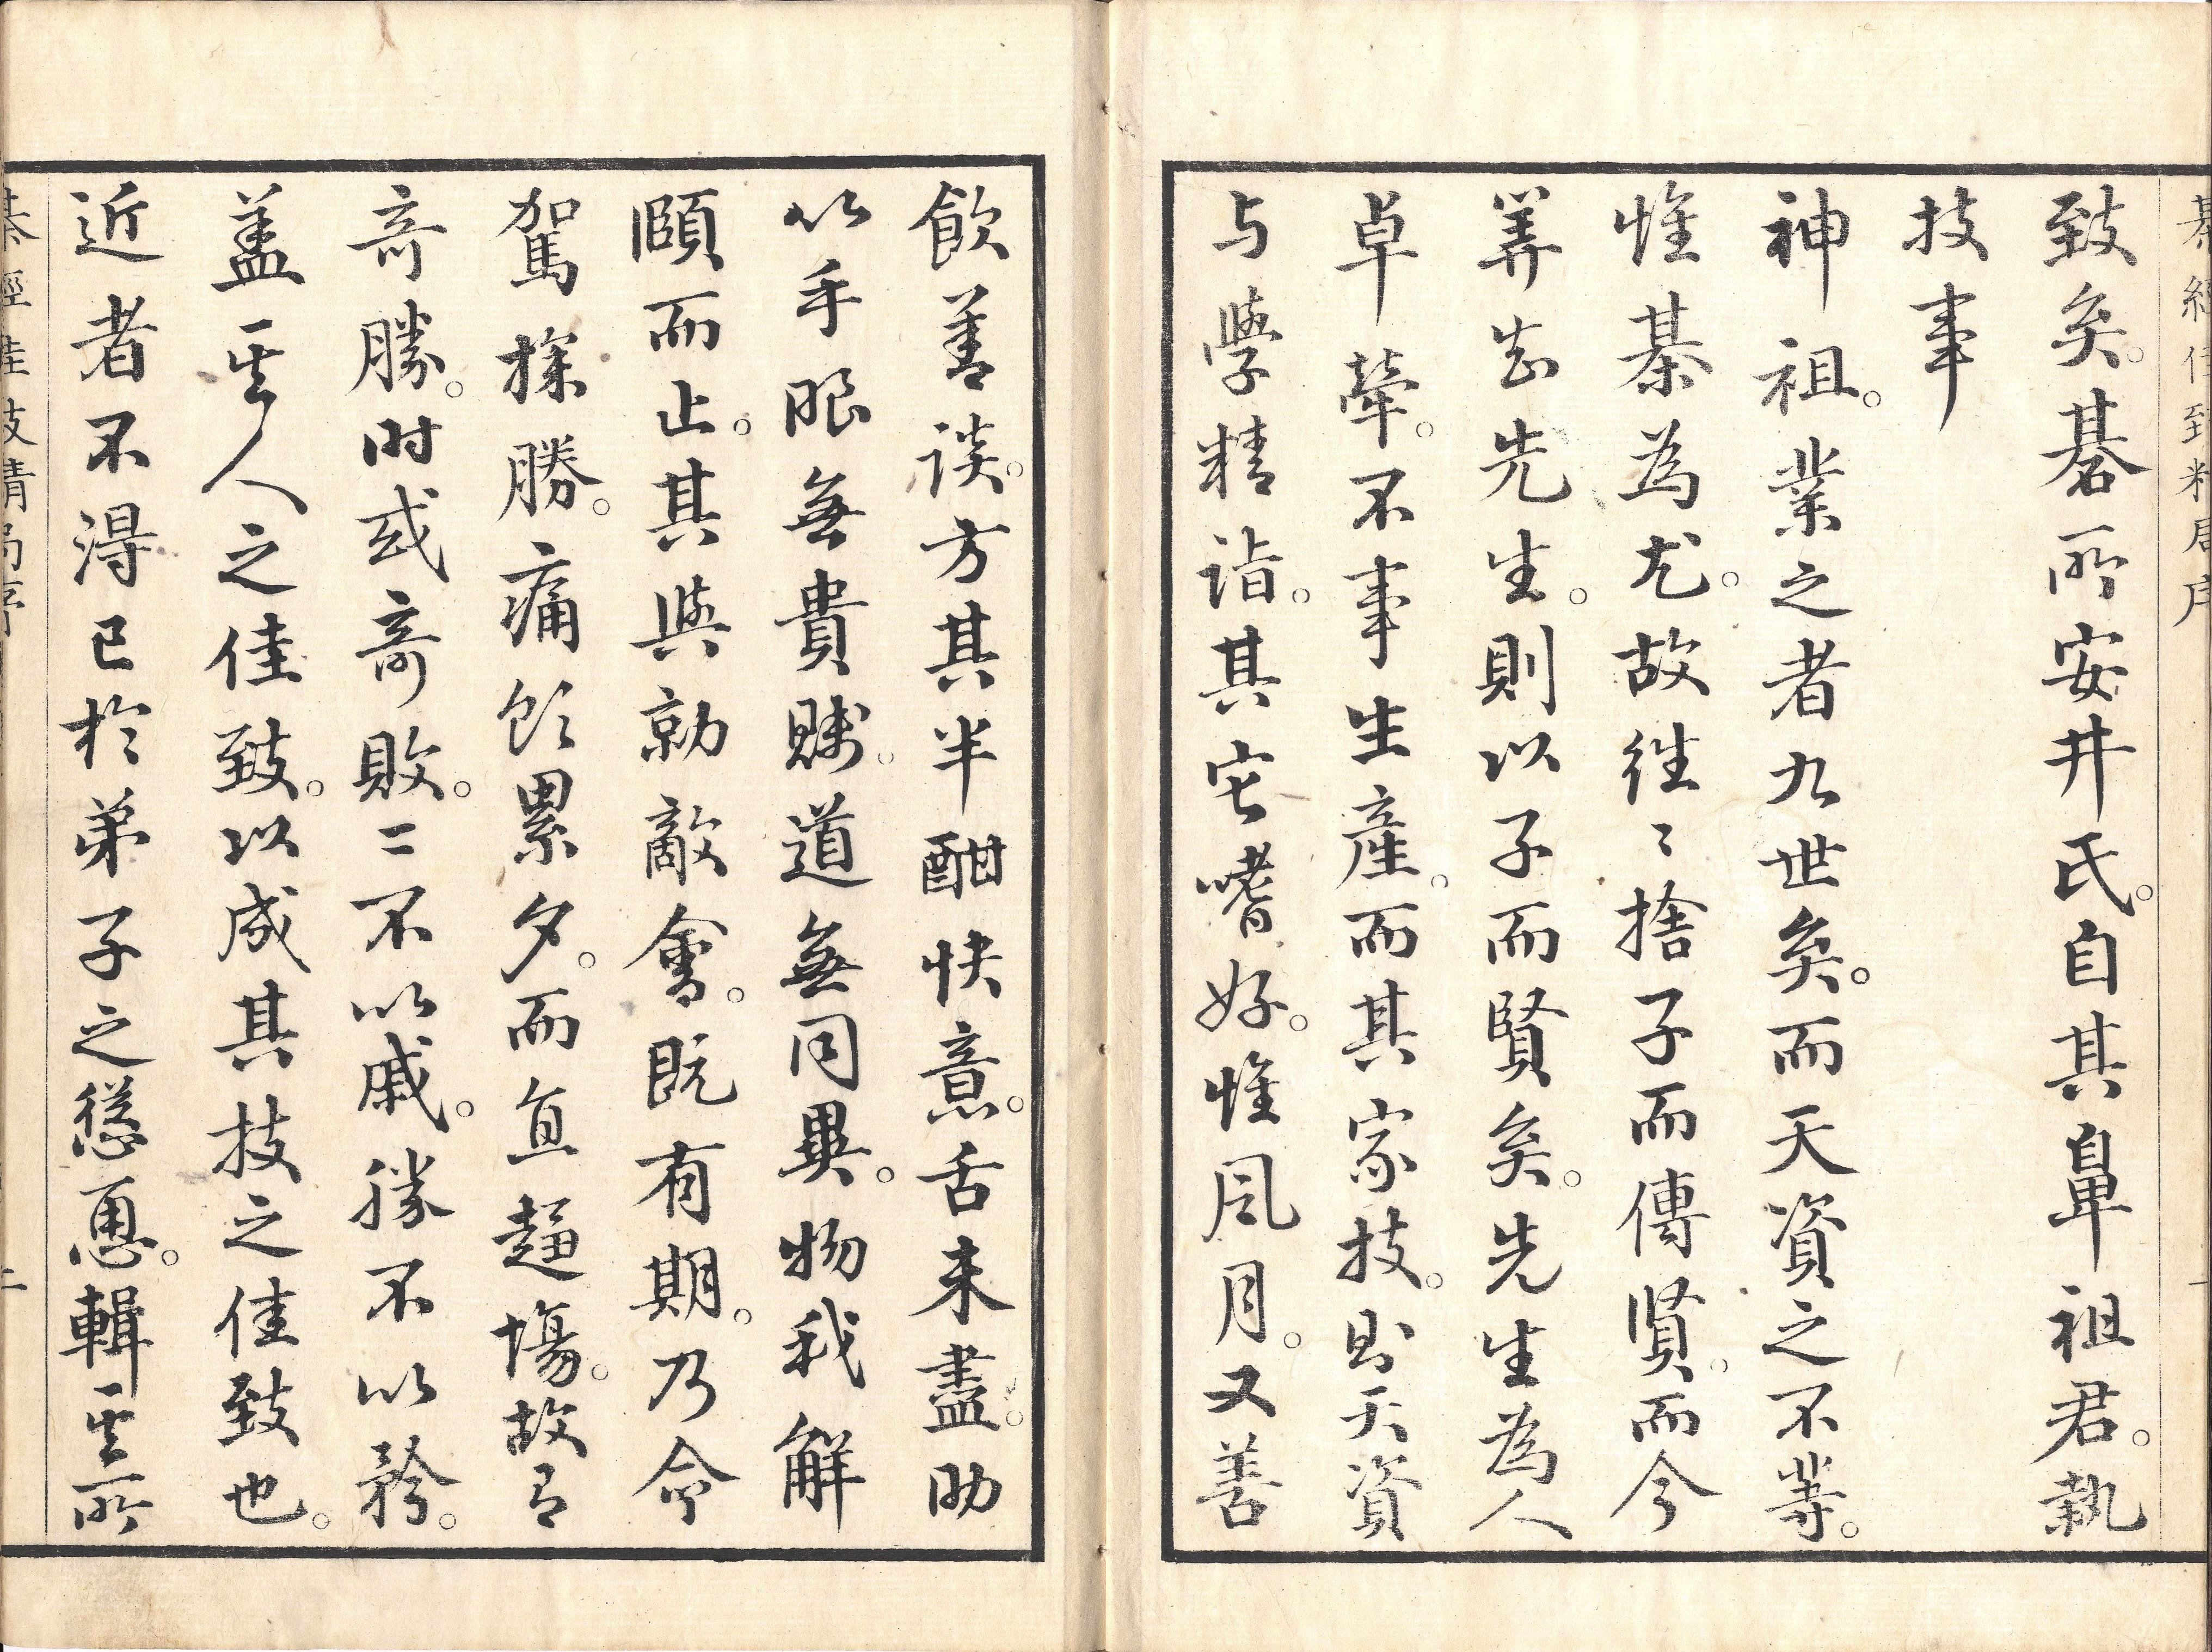 致矣。碁所安井氏。自其鼻祖君。執
技事
神祖。業之者九世矣。而天資之不等。
惟棊為尤。故往〻捨子而傳賢。而今
算知先生。則以子而賢矣。先生為人
卓犖。不事生產。而其家技。則天資
与學精詣。其它嗜好。惟風月。又善
飲善談。方其半酣快意。舌未盡。助
以手眼無貴賤。道無同異。物我解
頤而止。其與勍敵會。既有期。乃命
駕探勝。痛飲累夕。而直趨場。故有
奇勝。时或奇敗。二不以戚。勝不以矜。
盖其人之佳致。以成其技之佳致也。
近者不得已於弟子之慫慂。輯其所